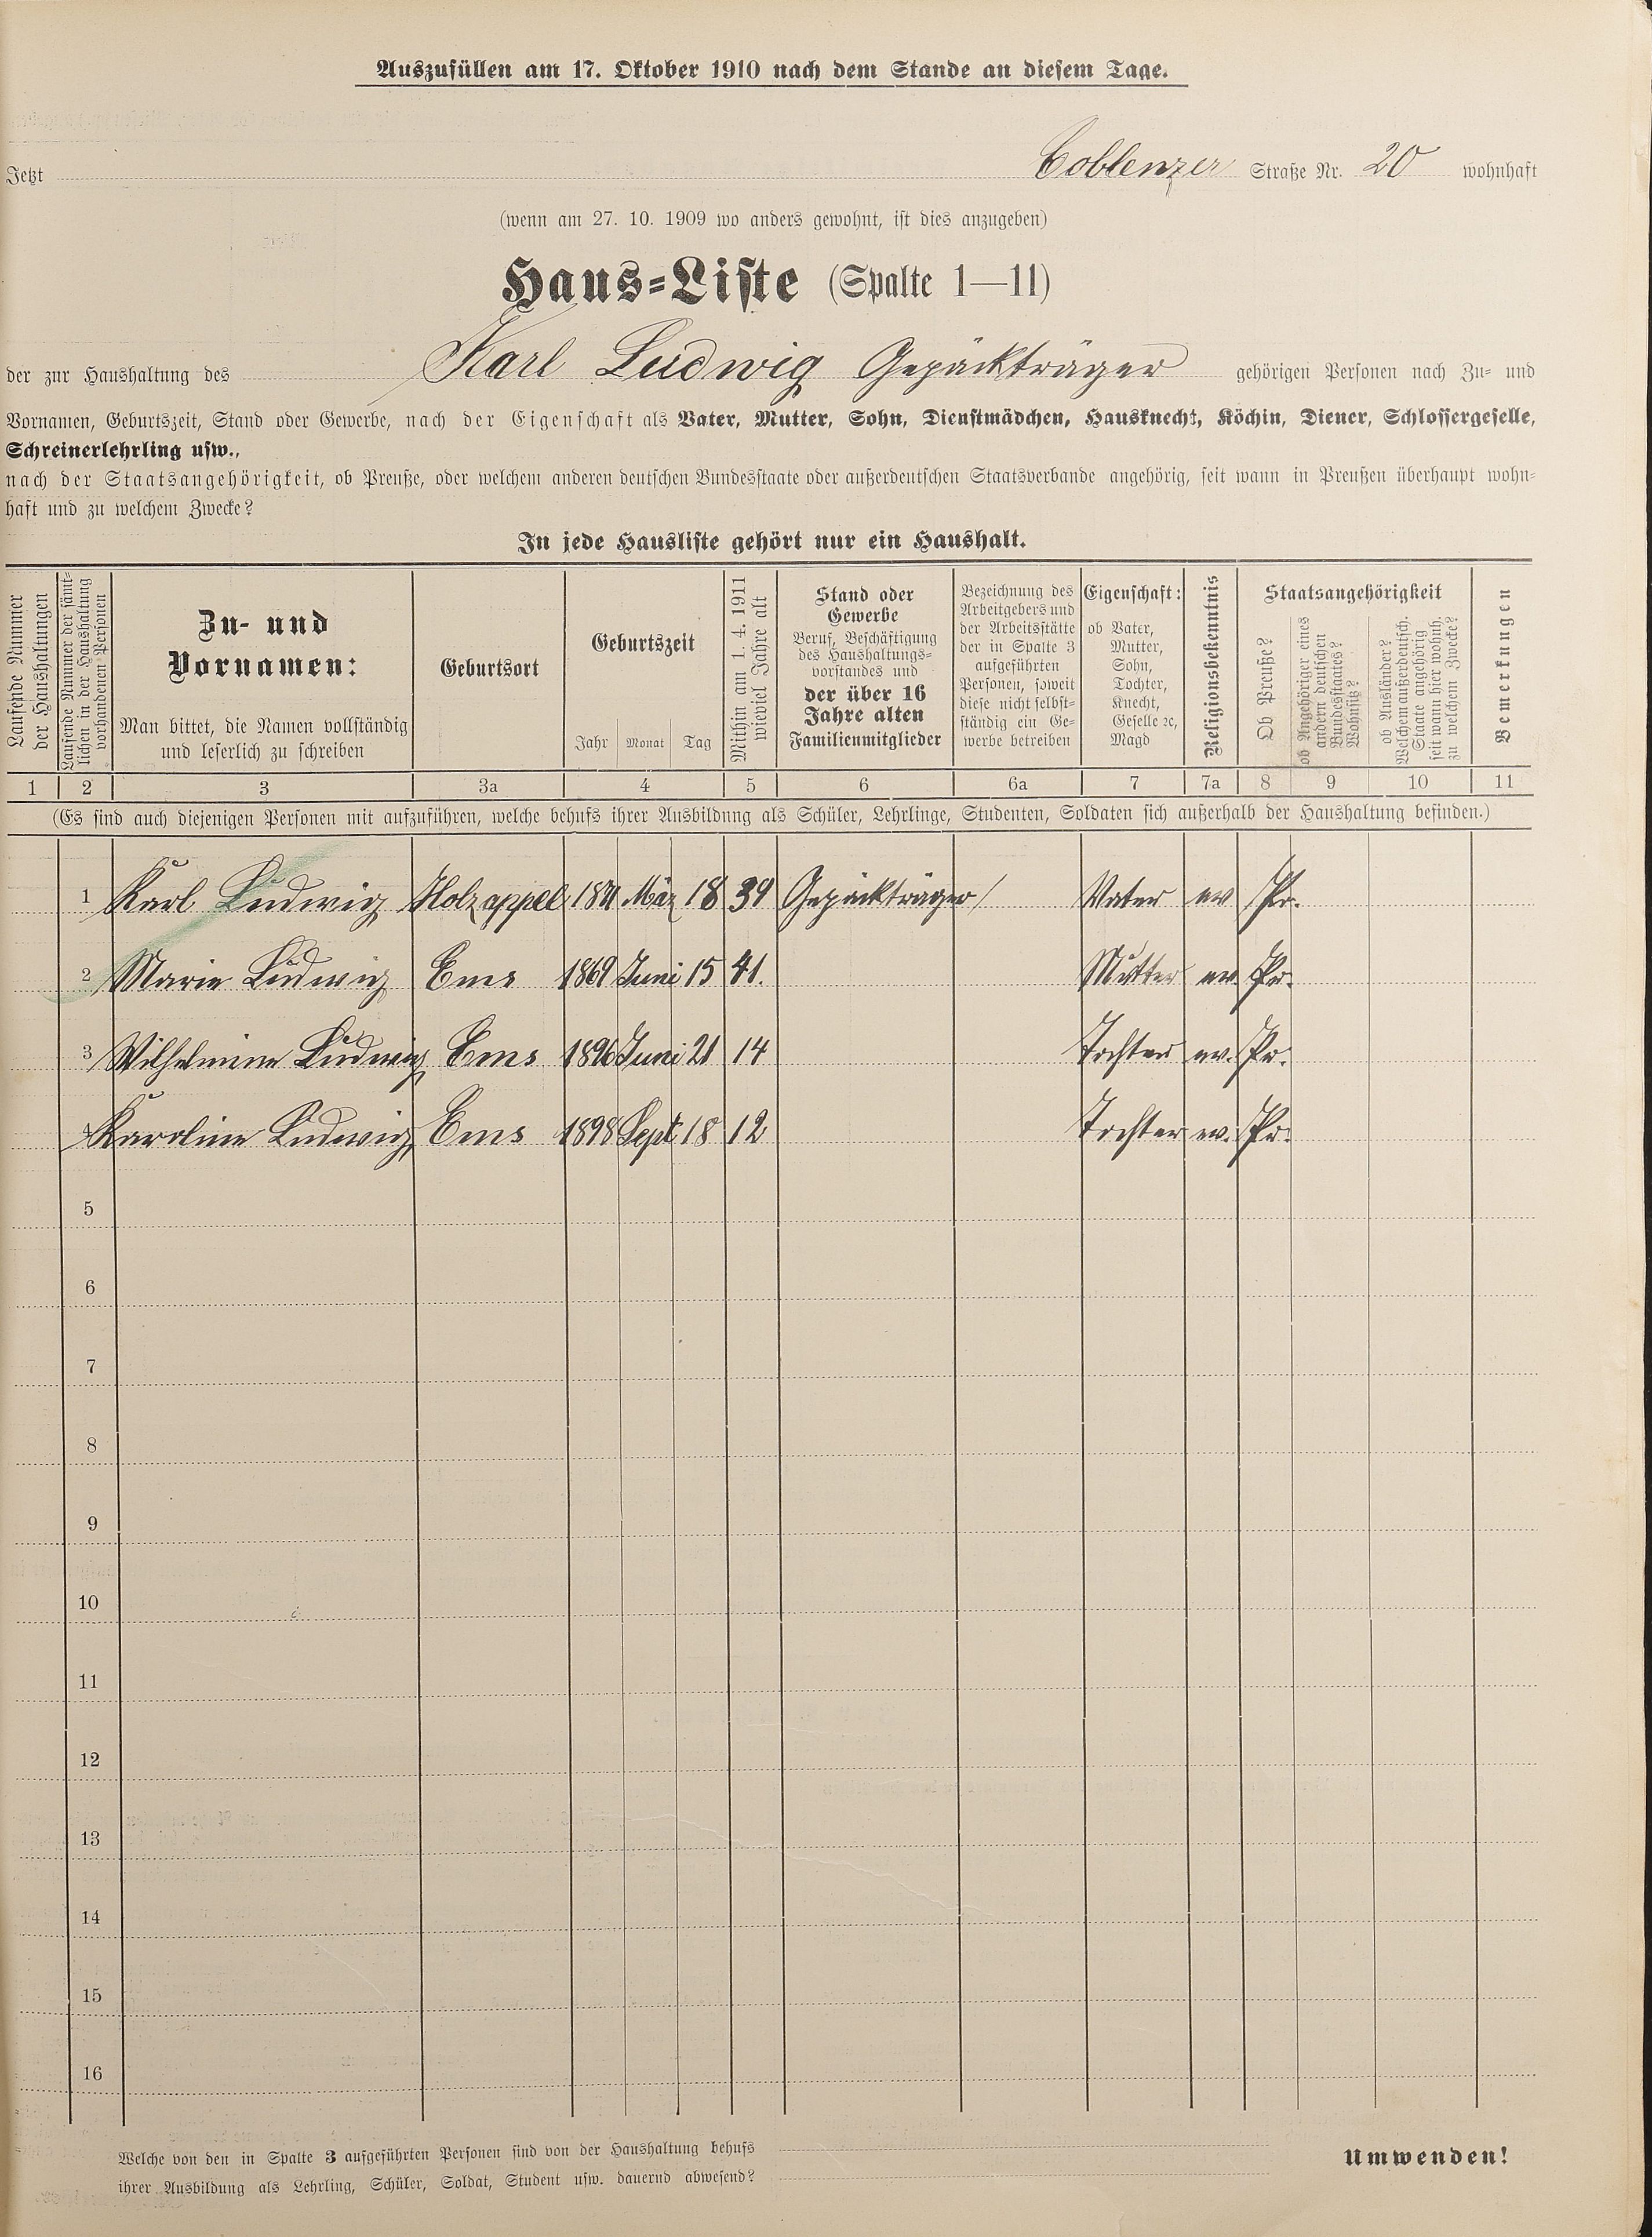 Auszufüllen am 17. Oktober 1910 nach dem Stande an diesem Tage.
Jetzt Coblenzer Straße Nr. 20 wohnhaft
(wenn am 27. 10. 1909 wo anders gewohnt, ist dies anzugeben)
Haus-Liste (Spalte 1—11)
der zur Haushaltung des Karl Ludwig Gepäckträger gehörigen Personen nach Zu- und
Vornamen, Geburtszeit, Stand oder Gewerbe, nach der Eigenschaft als Vater, Mutter, Sohn, Dienstmädchen, Hausknecht, Köchin, Diener, Schlossergeselle,
Schreinerlehrling usw.,
nach der Staatsangehörigkeit, ob Preuße, oder welchem anderen deutschen Bundesstaate oder außerdeutschen Staatsverbande angehörig, seit wann in Preußen überhaupt wohn-
haft und zu welchem Zwecke?
In jede Hausliste gehört nur ein Haushalt.
Laufende Nummer
der Haushaltungen
Laufende Nummer der sämt-
lichen in der Haushaltung
vorhandenen Personen
Zu- und
Vornamen:
Man bittet, die Namen vollständig
und leserlich zu schreiben
Geburtsort
Geburtszeit
Jahr Monat Tag
Mithin am 1. 4. 1911
wieviel Jahre alt
Stand oder
Gewerbe
Beruf, Beschäftigung
des Haushaltungs-
vorstandes und
der über 16
Jahre alten
Familienmitglieder
Bezeichnung des
Arbeitgebers und
der Arbeitsstätte
der in Spalte 3
aufgeführten
Personen, soweit
diese nicht selbst-
ständig ein Ge-
werbe betreiben
Eigenschaft:
ob Vater,
Mutter,
Sohn,
Tochter,
Knecht,
Geselle ꝛc,
Magd
Religionsbekenntnis
Staatsangehörigkeit
Ob Preuße?
ob Angehöriger eines
andern deutschen
Bundesstaates?
Wohnsitz?
ob Ausländer?
Welchem außerdeutsch.
Staate angehörig
seit wann hier wohnh.
zu welchem Zwecke?
Bemerkungen
1 2 3 3a 4 5 6 6a 7 7a 8 9 10 11
(Es sind auch diejenigen Personen mit aufzuführen, welche behufs ihrer Ausbildung als Schüler, Lehrlinge, Studenten, Soldaten sich außerhalb der Haushaltung befinden.)
1 Karl Ludwig Holzappel 1871 März 18 39 Gepäckträger / Vater ev Pr.
2 Marie Ludwig Ems 1869 Juni 15 41. Mutter ev. Pr.
3 Wilhelmine Ludwig Ems 1896 Juni 21 14 Tochter ev. Pr.
4 Karoline Ludwig Ems 1898 Sept 18 12 Tochter ev. Pr.
5
6
7
8
9
10
11
12
13
14
15
16
Welche von den in Spalte 3 aufgeführten Personen sind von der Haushaltung behufs
ihrer Ausbildung als Lehrling, Schüler, Soldat, Student usw. dauernd abwesend?
Umwenden!